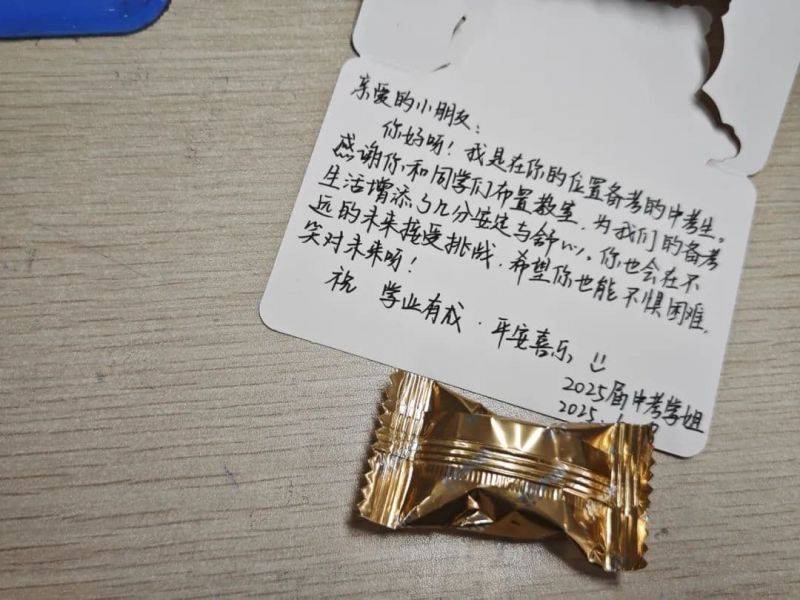 亲爱的小朋友：
你好呀！我是在你的位置备考的中考生。
感谢你和同学们布置教室，为我们的备考
生活增添了几分安定与舒心。你也会在不
远的未来接受挑战，希望你也能不惧困难，
笑对未来呀！
祝 学业有成·平安喜乐
2025届中考学姐
2025.